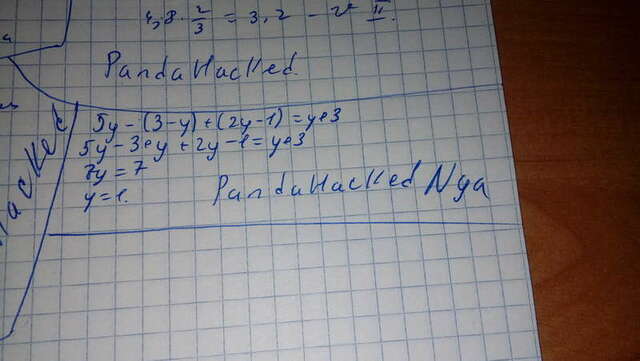 4,8 · 2/3 = 3,2 - II.
PandaHacked
Hacked
5y-(3-y)+(2y-1)=y+3
5y-3+y+2y-1=y+3
7y=7
y=1.
PandaHacked Nya